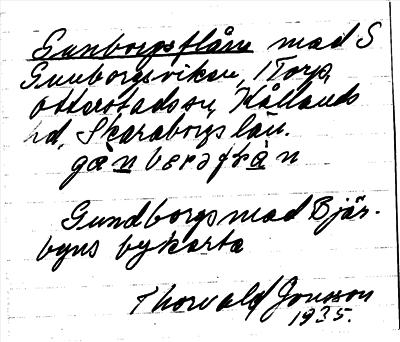 Gunborgsflåsn mad S
Gunborgsviken, 1 Torp,
Otterstads sn, Kållands
hd, Skaraborgs län.
Gundborgs mad Bjär-
byns bykarta
Thorvald Jonsson
1935.